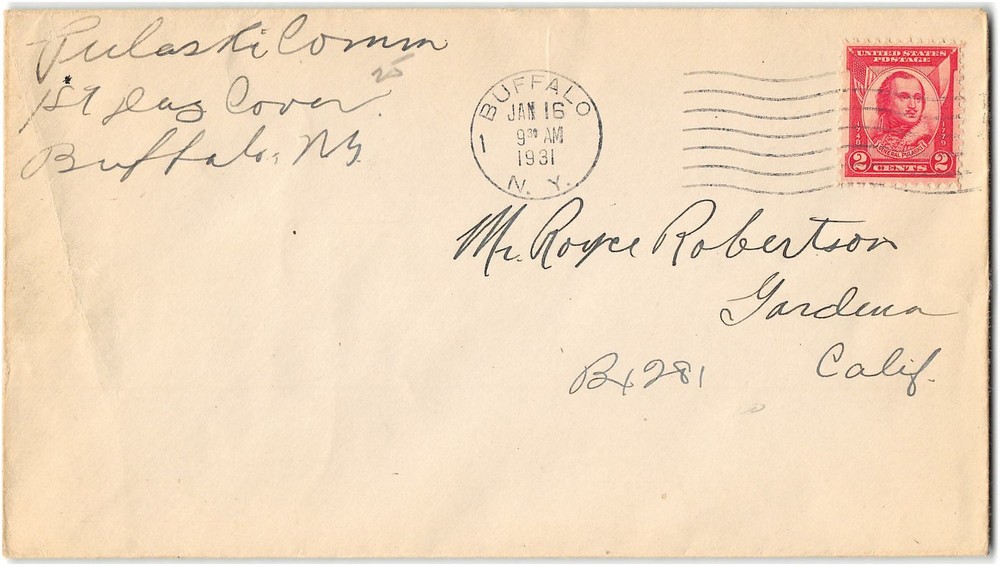 Pulaski Comm
25
1st Day Cover
Buffalo, Ny
BUFFALO
JAN 16
9 30 AM
1931
N. Y.
1
UNITED STATES
POSTAGE
1748 1779
GENERAL PULASKI
2 CENTS 2
Mr. Royce Robertson
Gardena
Bx 281 Calif.